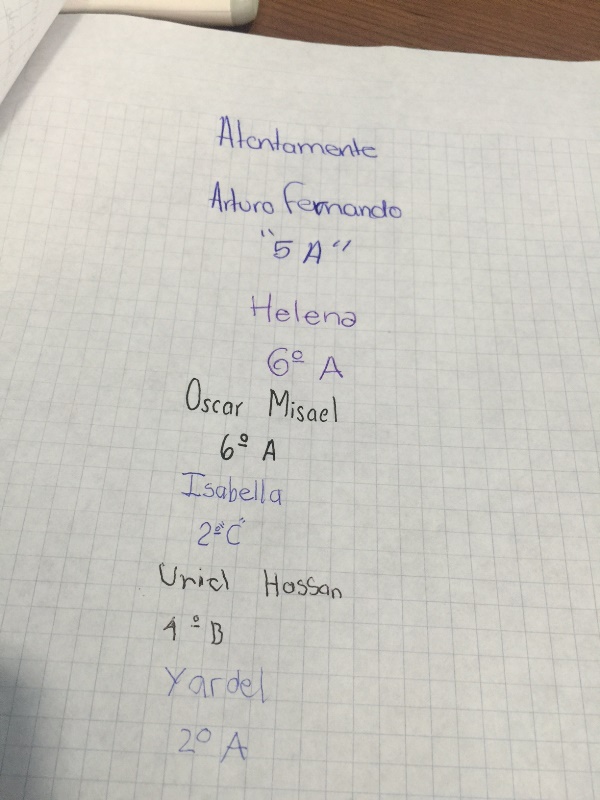 Atentamente
Arturo Fernando
"5 A"
Helena
6º A
Oscar Misael
6º A
Isabella
2º "C"
Uriel Hassan
4º B
Yardel
2º A